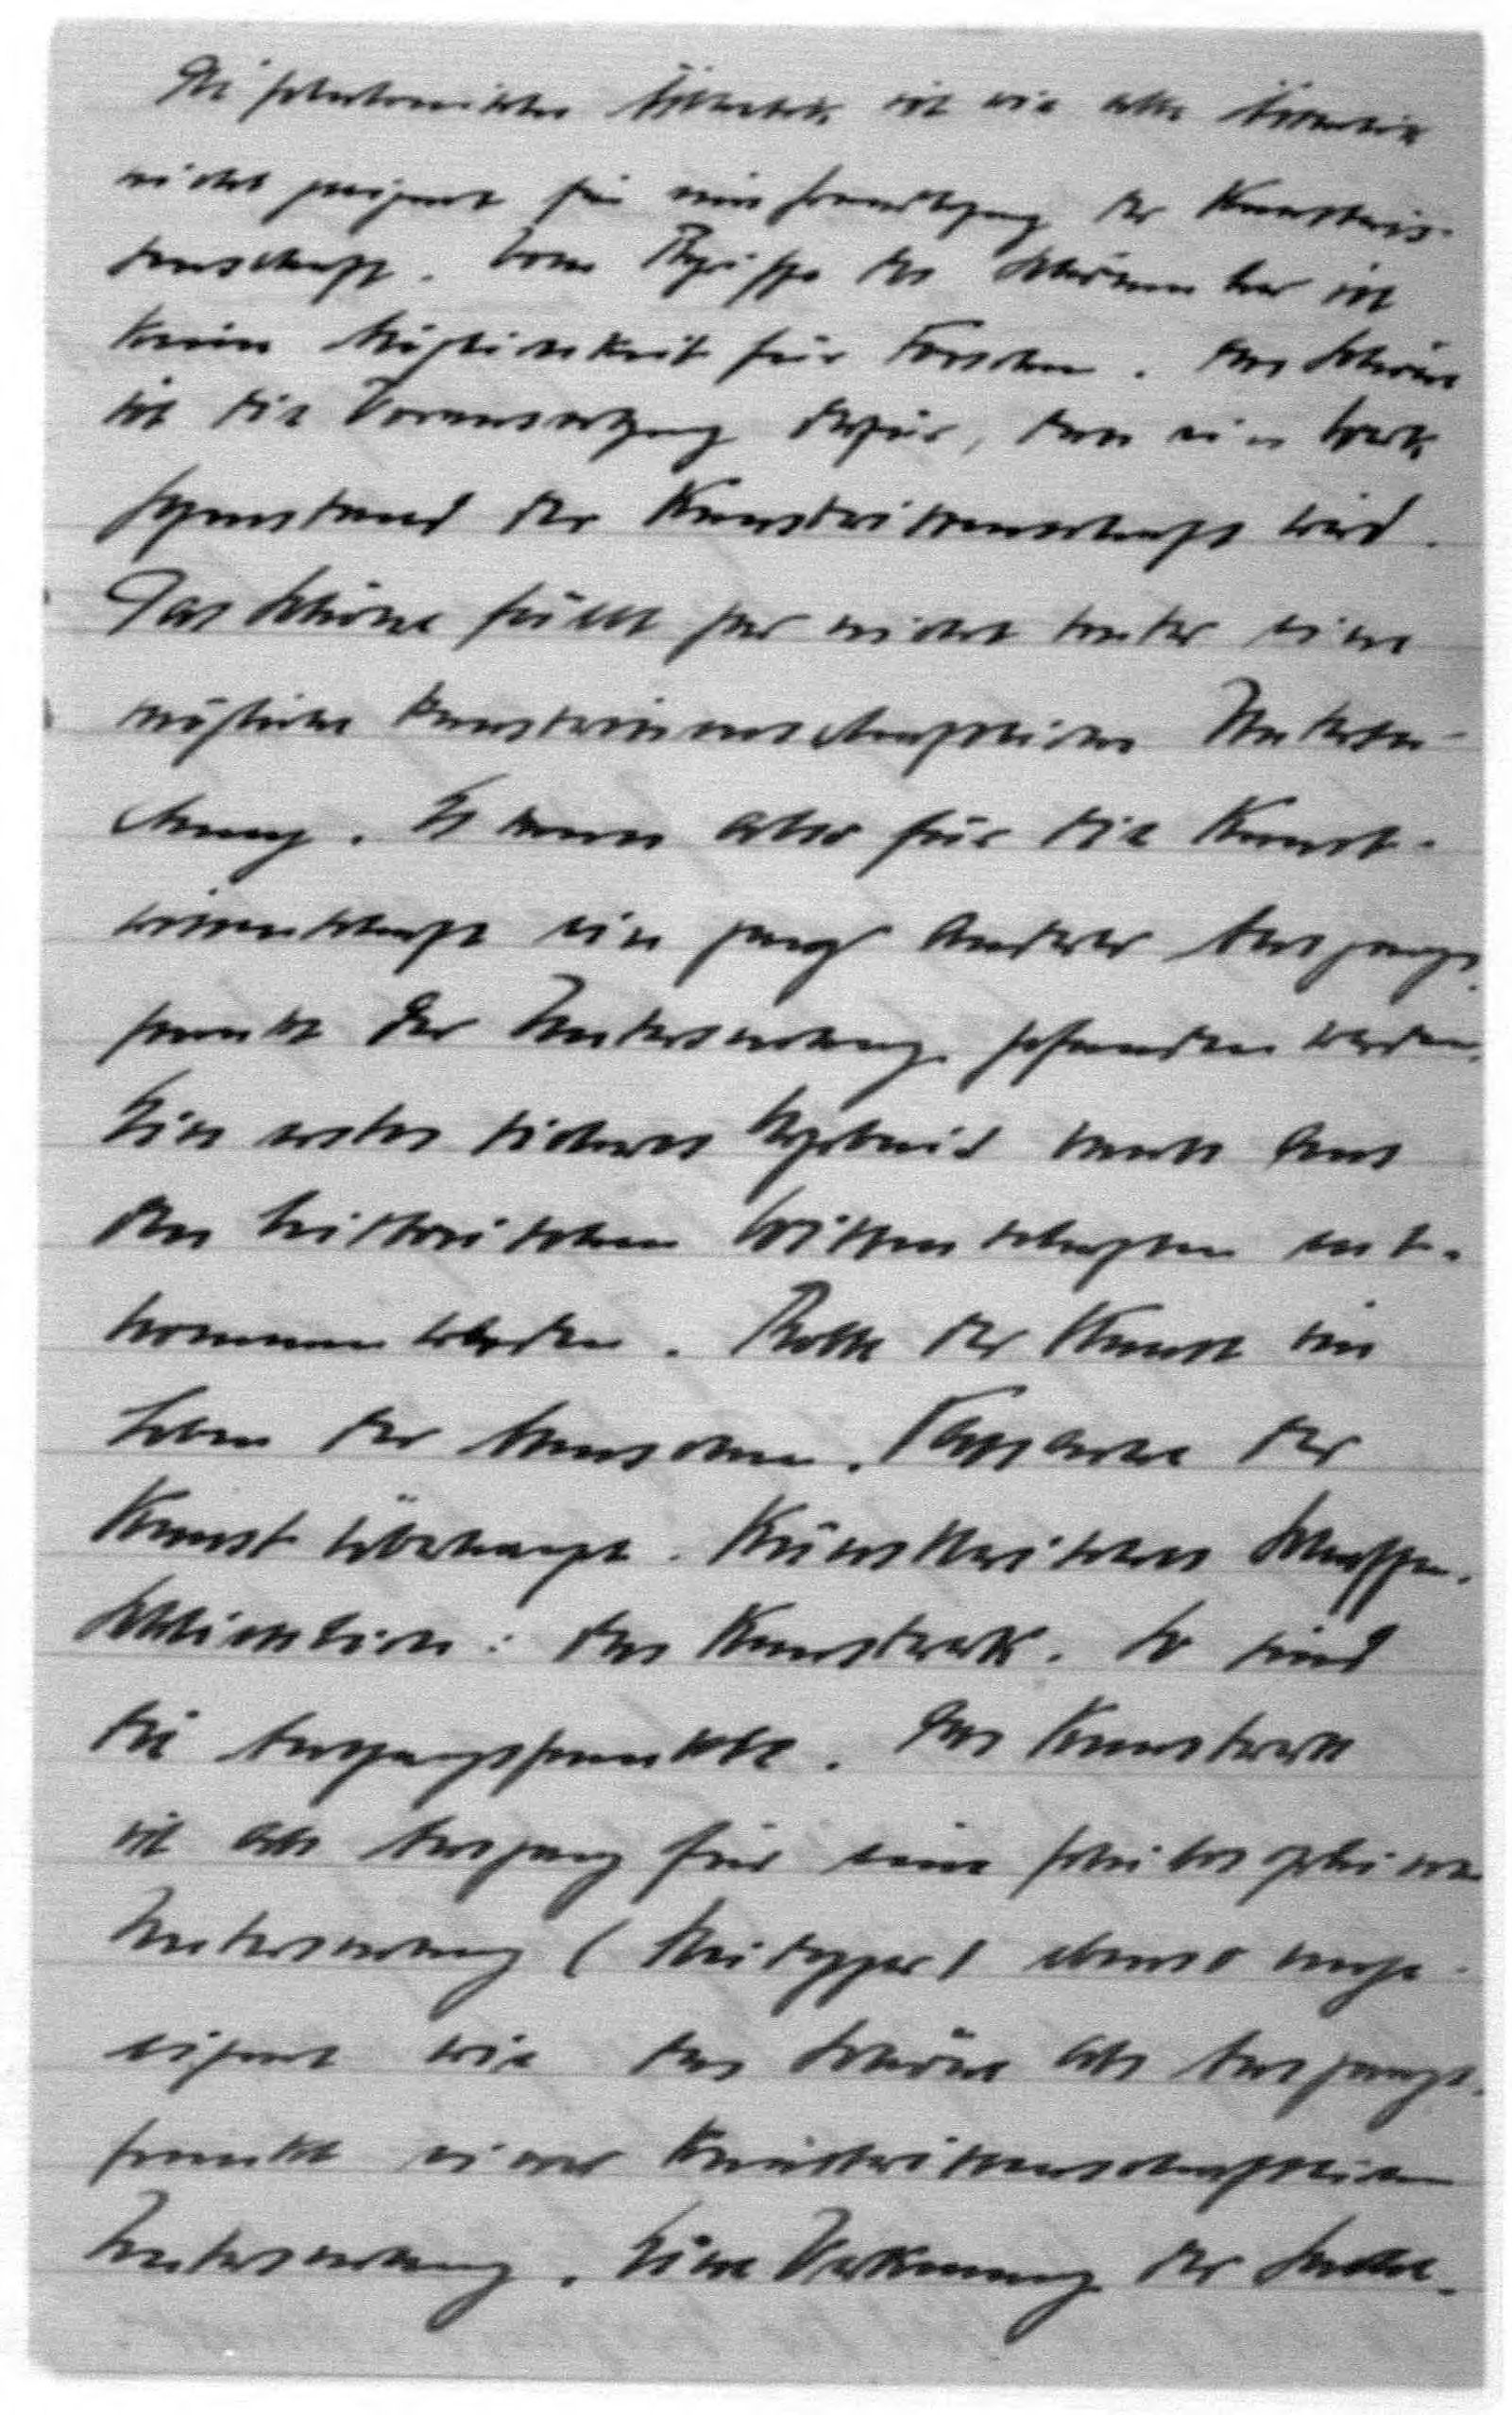 Die platonische Ästhetik ist wie alle Ästhetik
nicht geeignet für eine Grundlegung der Kunstwis-
senschaft. Vom Begriffe des Schönen her ist
keine Möglichkeit für Forschen. Das Schöne
ist die Voraussetzung dafür, dass ein Werk
Gegenstand der Kunstwissenschaft wird.
Das Schöne fällt gar nicht unter eine
mögliche kunstwissenschaftliche Untersu-
chung. Es muss also für die Kunst-
wissenschaft ein ganz anderer Ausgangs-
punkt der Untersuchung gefunden werden.
Ein erstes sicheres Ergebnis muss aus
den historischen Wissenschaften ent-
nommen werden. Rolle der Kunst im
Leben der Menschen. Tatsache der
Kunst überhaupt. Künstlerisches Schaffen.
Schliesslich: das Kunstwerk. So sind
die Ausgangspunkte. Das Kunstwerk
ist als Ausgang für eine philosophische
Untersuchung (Heidegger) ebenso unge-
eignet wie das Schöne als Ausgangs-
punkt einer kunstwissenschaftlichen
Untersuchung. Eine Verkennung der Sache.